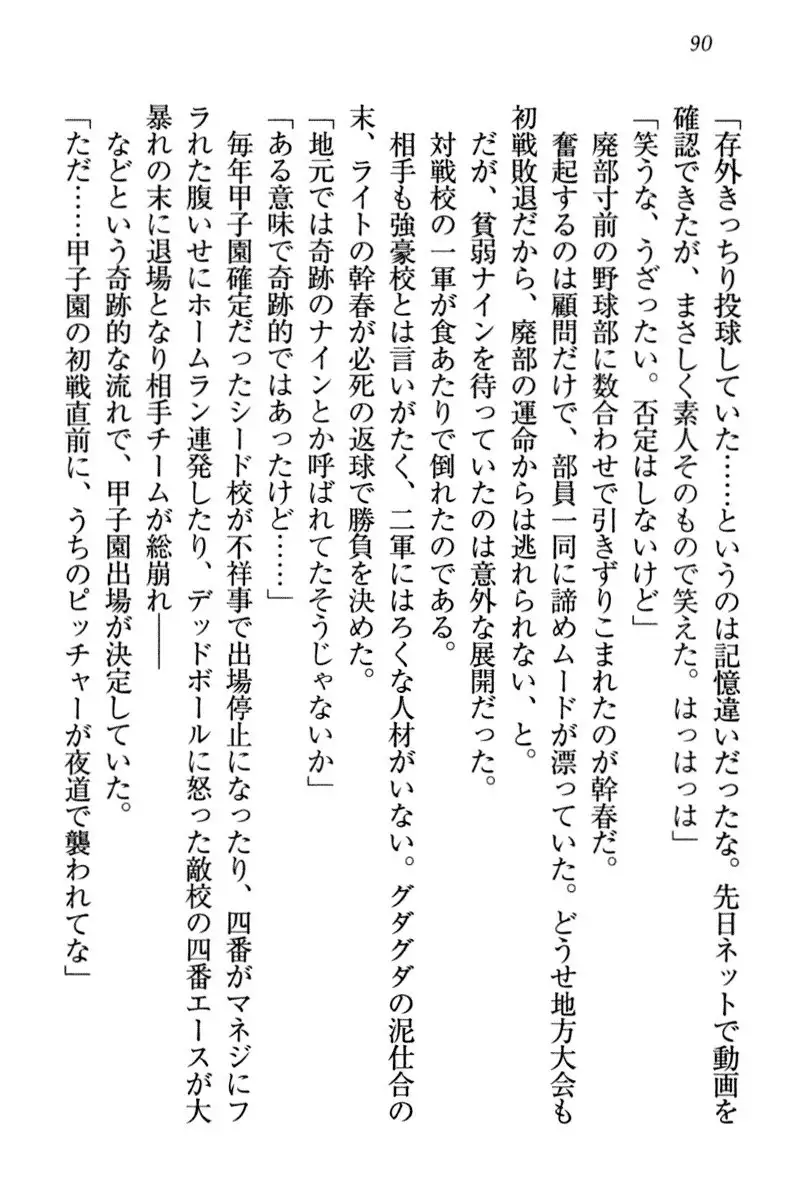 90
「存外きっちり投球していた……というのは記憶違いだったな。先日ネットで動画を
確認できたが、まさしく素人そのもので笑えた。はっはっは」
「笑うな、うざったい。否定はしないけど」
廃部寸前の野球部に数合わせで引きずりこまれたのが幹春だ。
奮起するのは顧問だけで、部員一同に諦めムードが漂っていた。どうせ地方大会も
初戦敗退だから、廃部の運命からは逃れられない、と。
だが、貧弱ナインを待っていたのは意外な展開だった。
対戦校の一軍が食あたりで倒れたのである。
相手も強豪校とは言いがたく、二軍にはろくな人材がいない。グダグダの泥仕合の
末、ライトの幹春が必死の返球で勝負を決めた。
「地元では奇跡のナインとか呼ばれてたそうじゃないか」
「ある意味で奇跡的ではあったけど……」
毎年甲子園確定だったシード校が不祥事で出場停止になったり、四番がマネジにフ
ラれた腹いせにホームラン連発したり、デッドボールに怒った敵校の四番エースが大
暴れの末に退場となり相手チームが総崩れ――
などという奇跡的な流れで、甲子園出場が決定していた。
「ただ……甲子園の初戦直前に、うちのピッチャーが夜道で襲われてな」